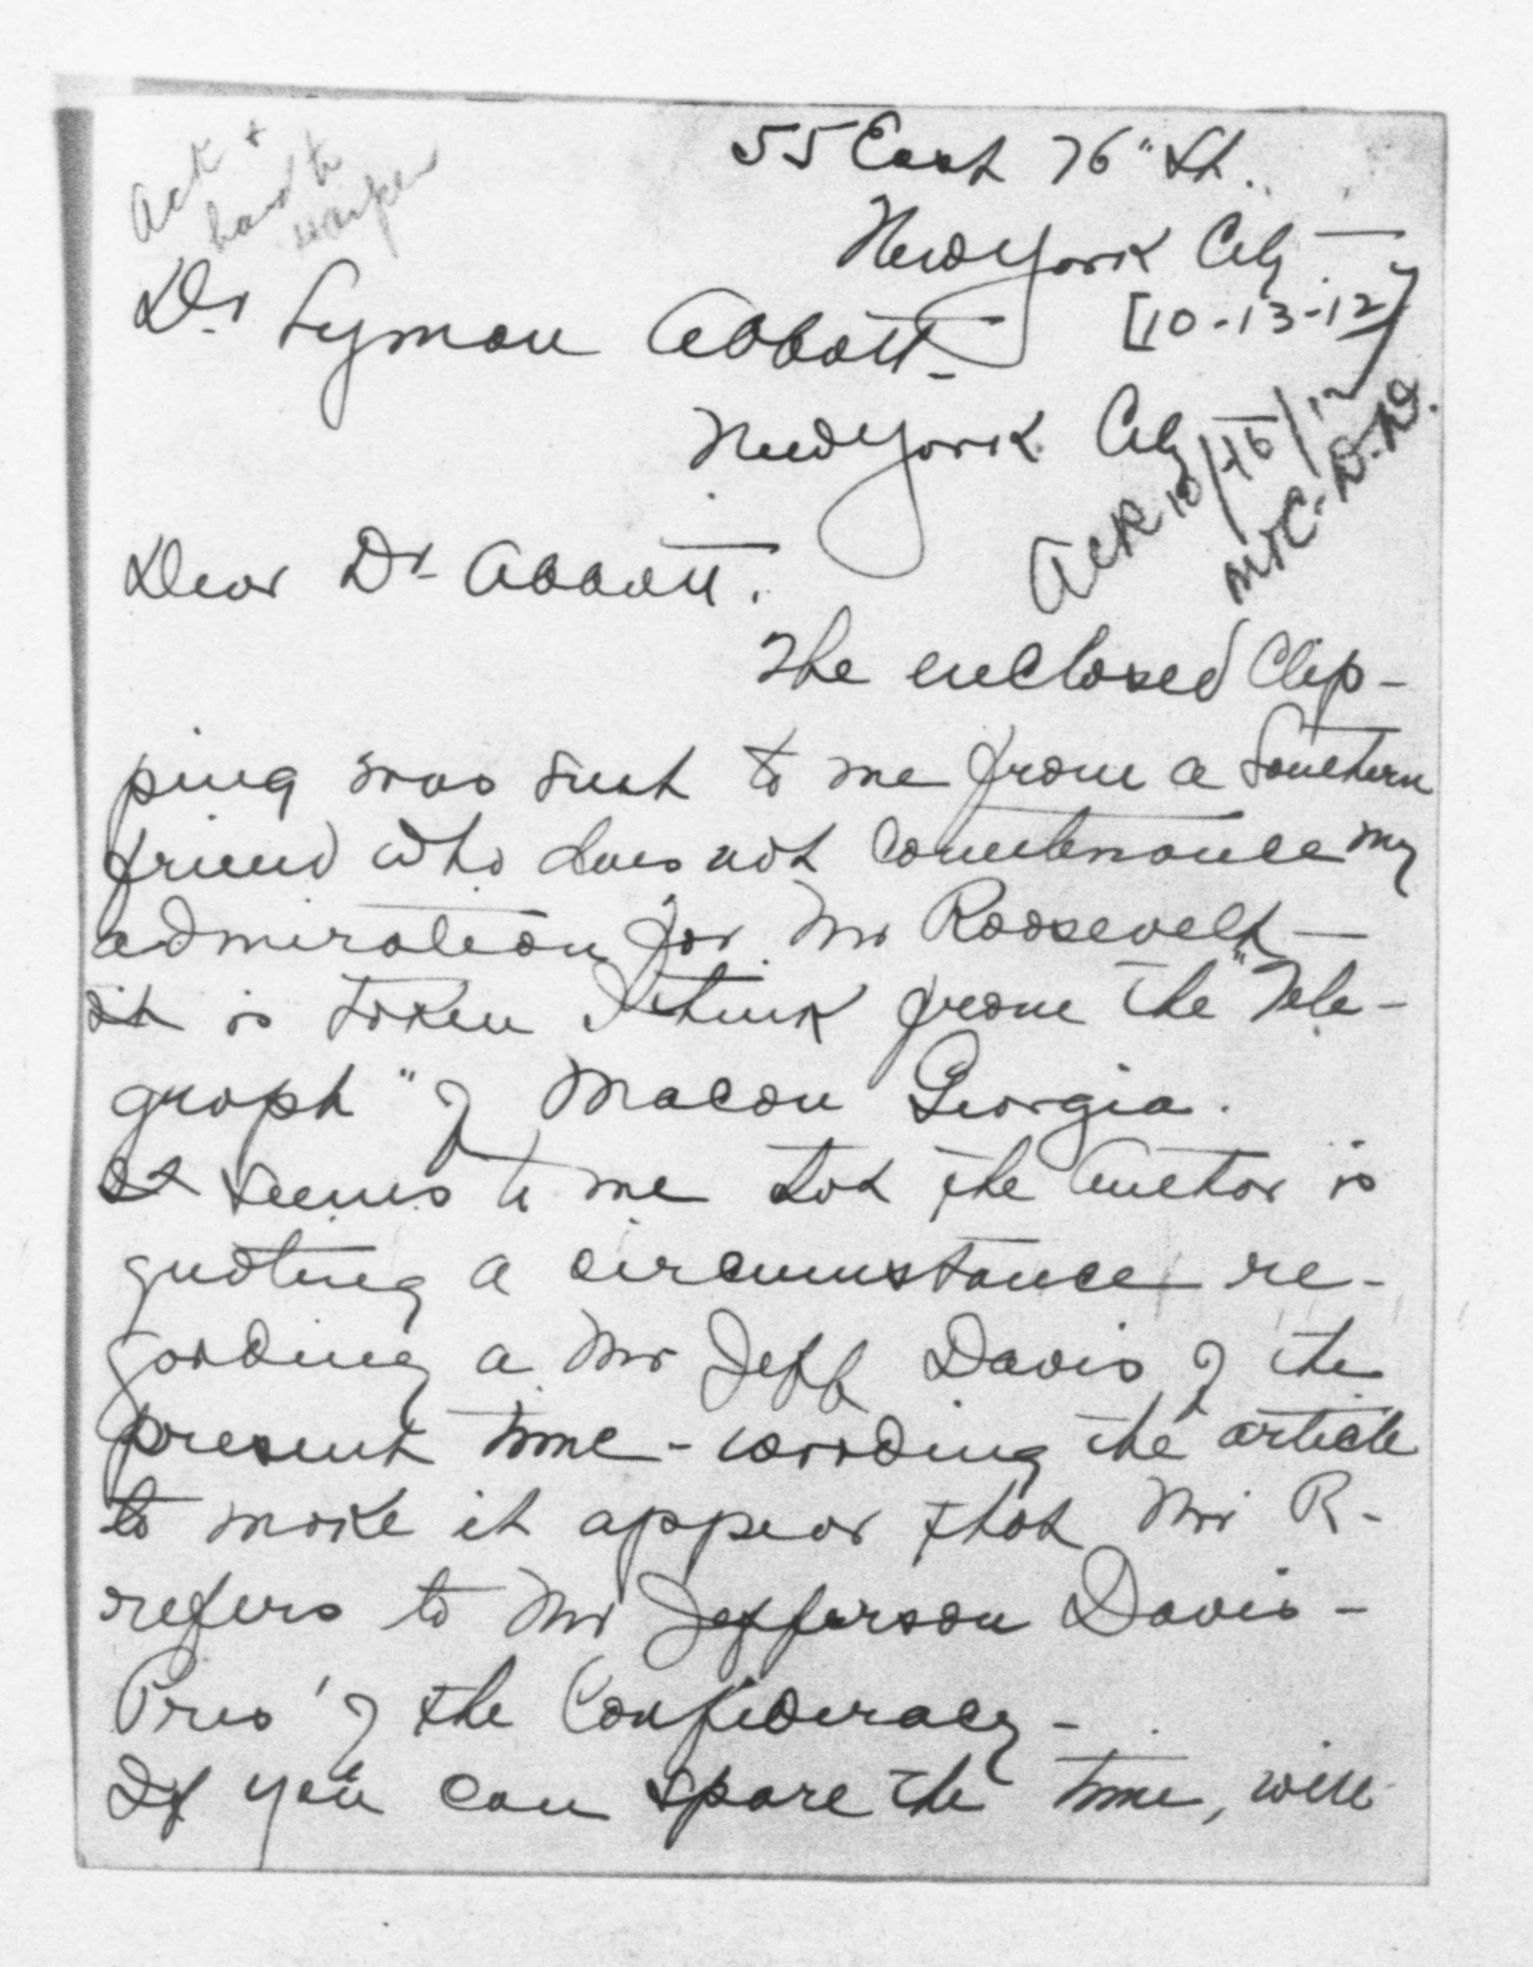 55 East 76" St.
New York City —
Ack +
hand to
Harper
Dr Lyman Abbott —
[10-13-12]
New York City
Ack 10/15/12
Dear Dr Abbott.
The enclosed Clip-
ping was sent to me from a Southern
friend who does not countenance my
admiration for Mr Roosevelt —
it is taken I think from the "Tele-
graph" of Macon Georgia.
It seems to me tht the Author is
quoting a circumstance re-
garding a Mr Jeff Davis of the
present time - wording the article
to make it appear that Mr R-
refers to Mr Jefferson Davis -
Pres' of the Confederacy -
If you can spare the time, will